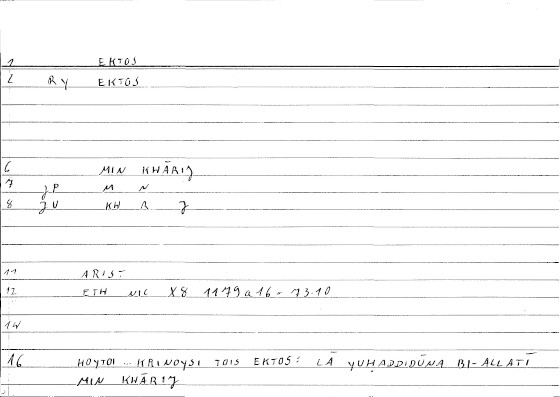 1 EKTOS
2 RY EKTOS
6 MIN KHĀRIJ
7 JP M N
8 JV KH R J
11 ARIST
12 ETH NIC X8 1179a16 - 73.10
14
16 HOYTOI ... KRINOYSI TOIS EKTOS: LĀ YUḤADDIDŪNA BI-ALLATĪ
MIN KHĀRIJ